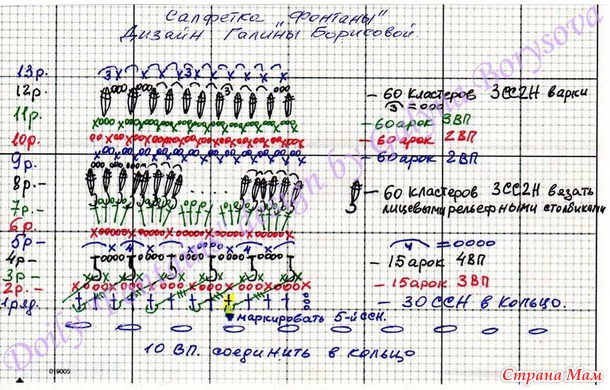 Салфетка „Фонтаны"
Дизайн Галины Борисовой.
13р.
12р. – 60 кластеров 3ССН варки
3 = ооо
11р. – 60 арок 3ВП
10р. – 60 арок 2ВП
9р. – 60 арок 2ВП
8р. – 60 кластеров 3СС2Н вязать
7р. лицевыми рельефными столбиками
6р.
5р. 4 = оооо
4р – 15 арок 4ВП
3р – 15 арок 3ВП
2р. – 30 ССН в кольцо.
1ряд.
маркировать 5-й ССН.
10 ВП. соединить в кольцо
Doily "Fountains" design by Galina Borysova
019005
Страна Мам